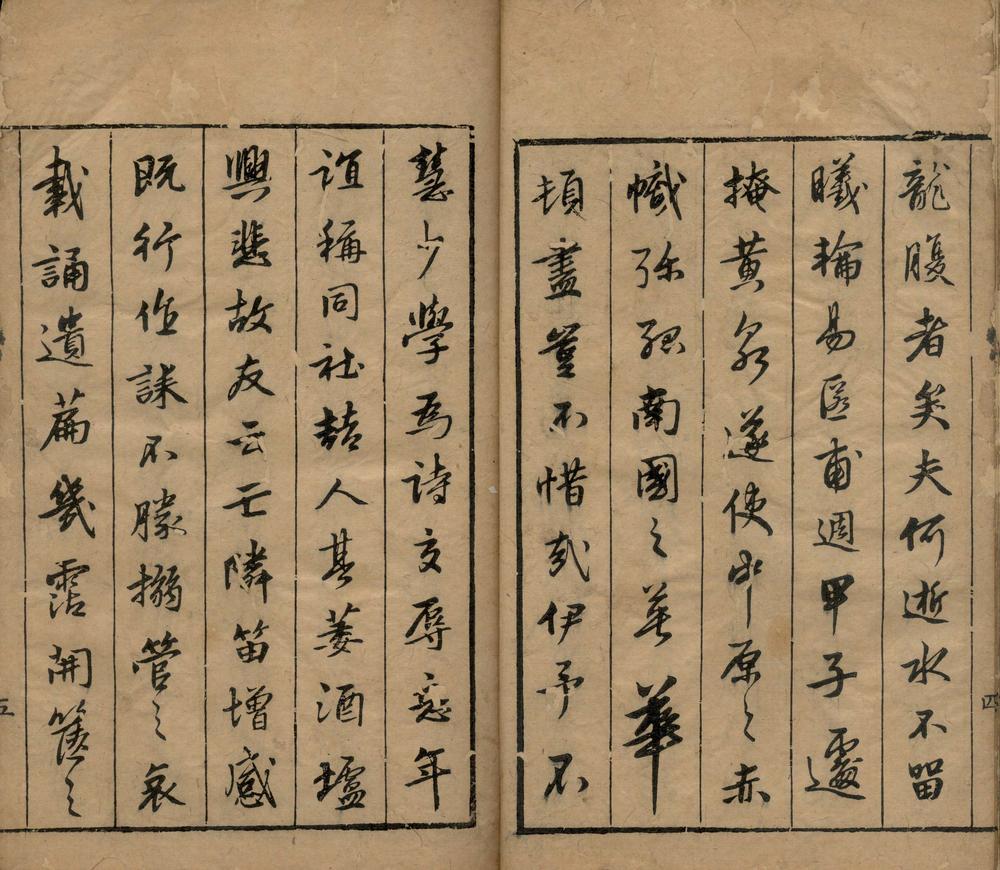 龍腹者矣夫何逝水不留
曦輪易匿甫週甲子遽
掩黃泉遂使中原之赤
幟弥孤南國之英華
頓盡豈不惜哉伊予不
慧少學為詩文辱忘年
誼稱同社喆人其萎酒壚
興悲故友云亡隣笛增感
既行作誄不勝搦管之哀
載誦遺篇幾霑開篋之
四
五